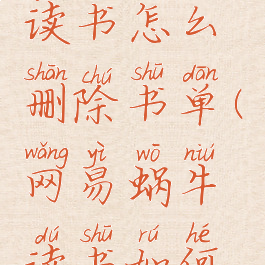 读书怎么
shān chú shū dān
删除书单(
wǎng yì wō niú
网易蜗牛
dú shū rú hé
读书如何